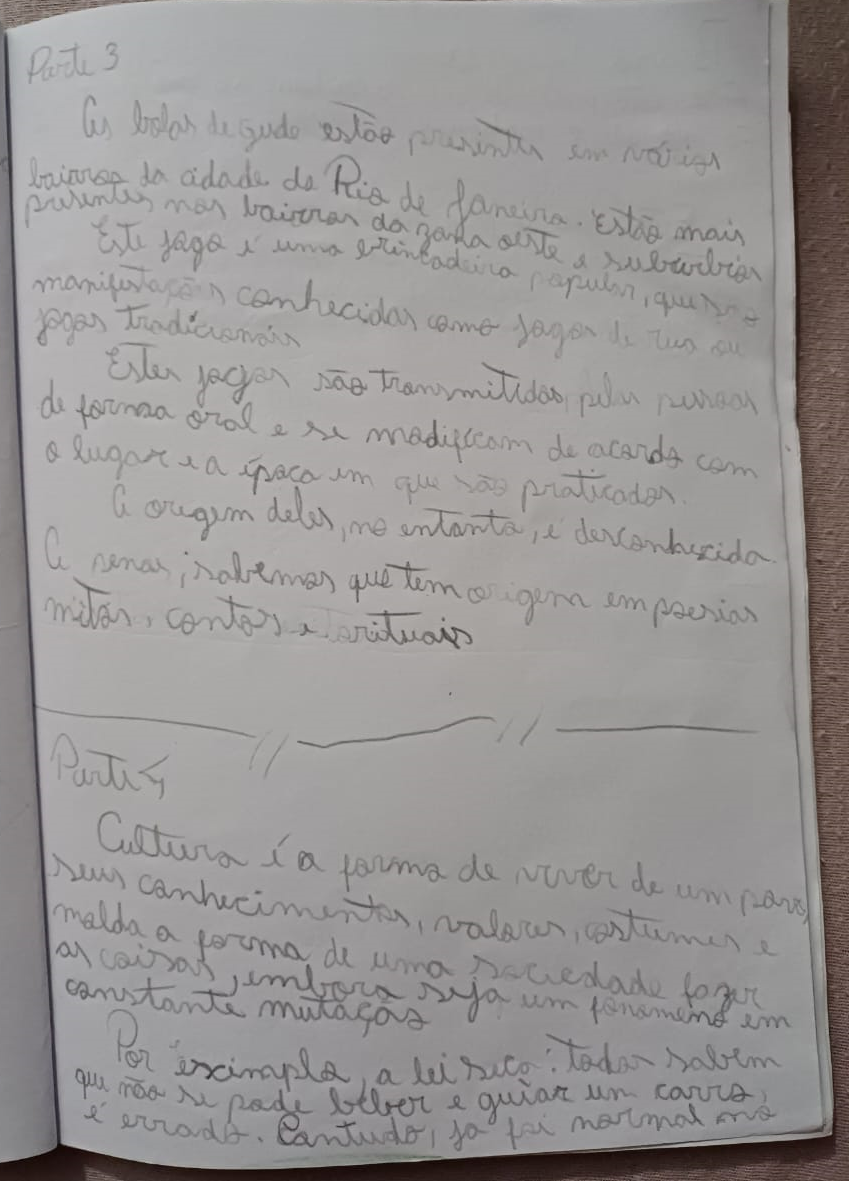 Parte 3
As bolas de gude estão presentes em vários
bairros da cidade do Rio de Janeiro. Estão mais
presentes nos bairros da zona oeste e subúrbios
Este jogo é uma brincadeira popular, que são
manifestações conhecidas como jogos de rua ou
jogos tradicionais
Estes jogos são transmitidos pelas pessoas
de forma oral e se modificam de acordo com
o lugar e a época em que são praticados.
A origem deles, no entanto, é desconhecida.
A penas, sabemos que tem origem em poesias
mitos, contos e rituais
Parte 4
Cultura é a forma de viver de um povo,
seus conhecimentos, valores, costumes e
molda a forma de uma sociedade fazer
as coisas, embora seja um fenomeno em
constante mutação
Por exemplo, a lei seca: todos sabem
que não se pode beber e guiar um carro,
é errado. Contudo, ja foi normal no